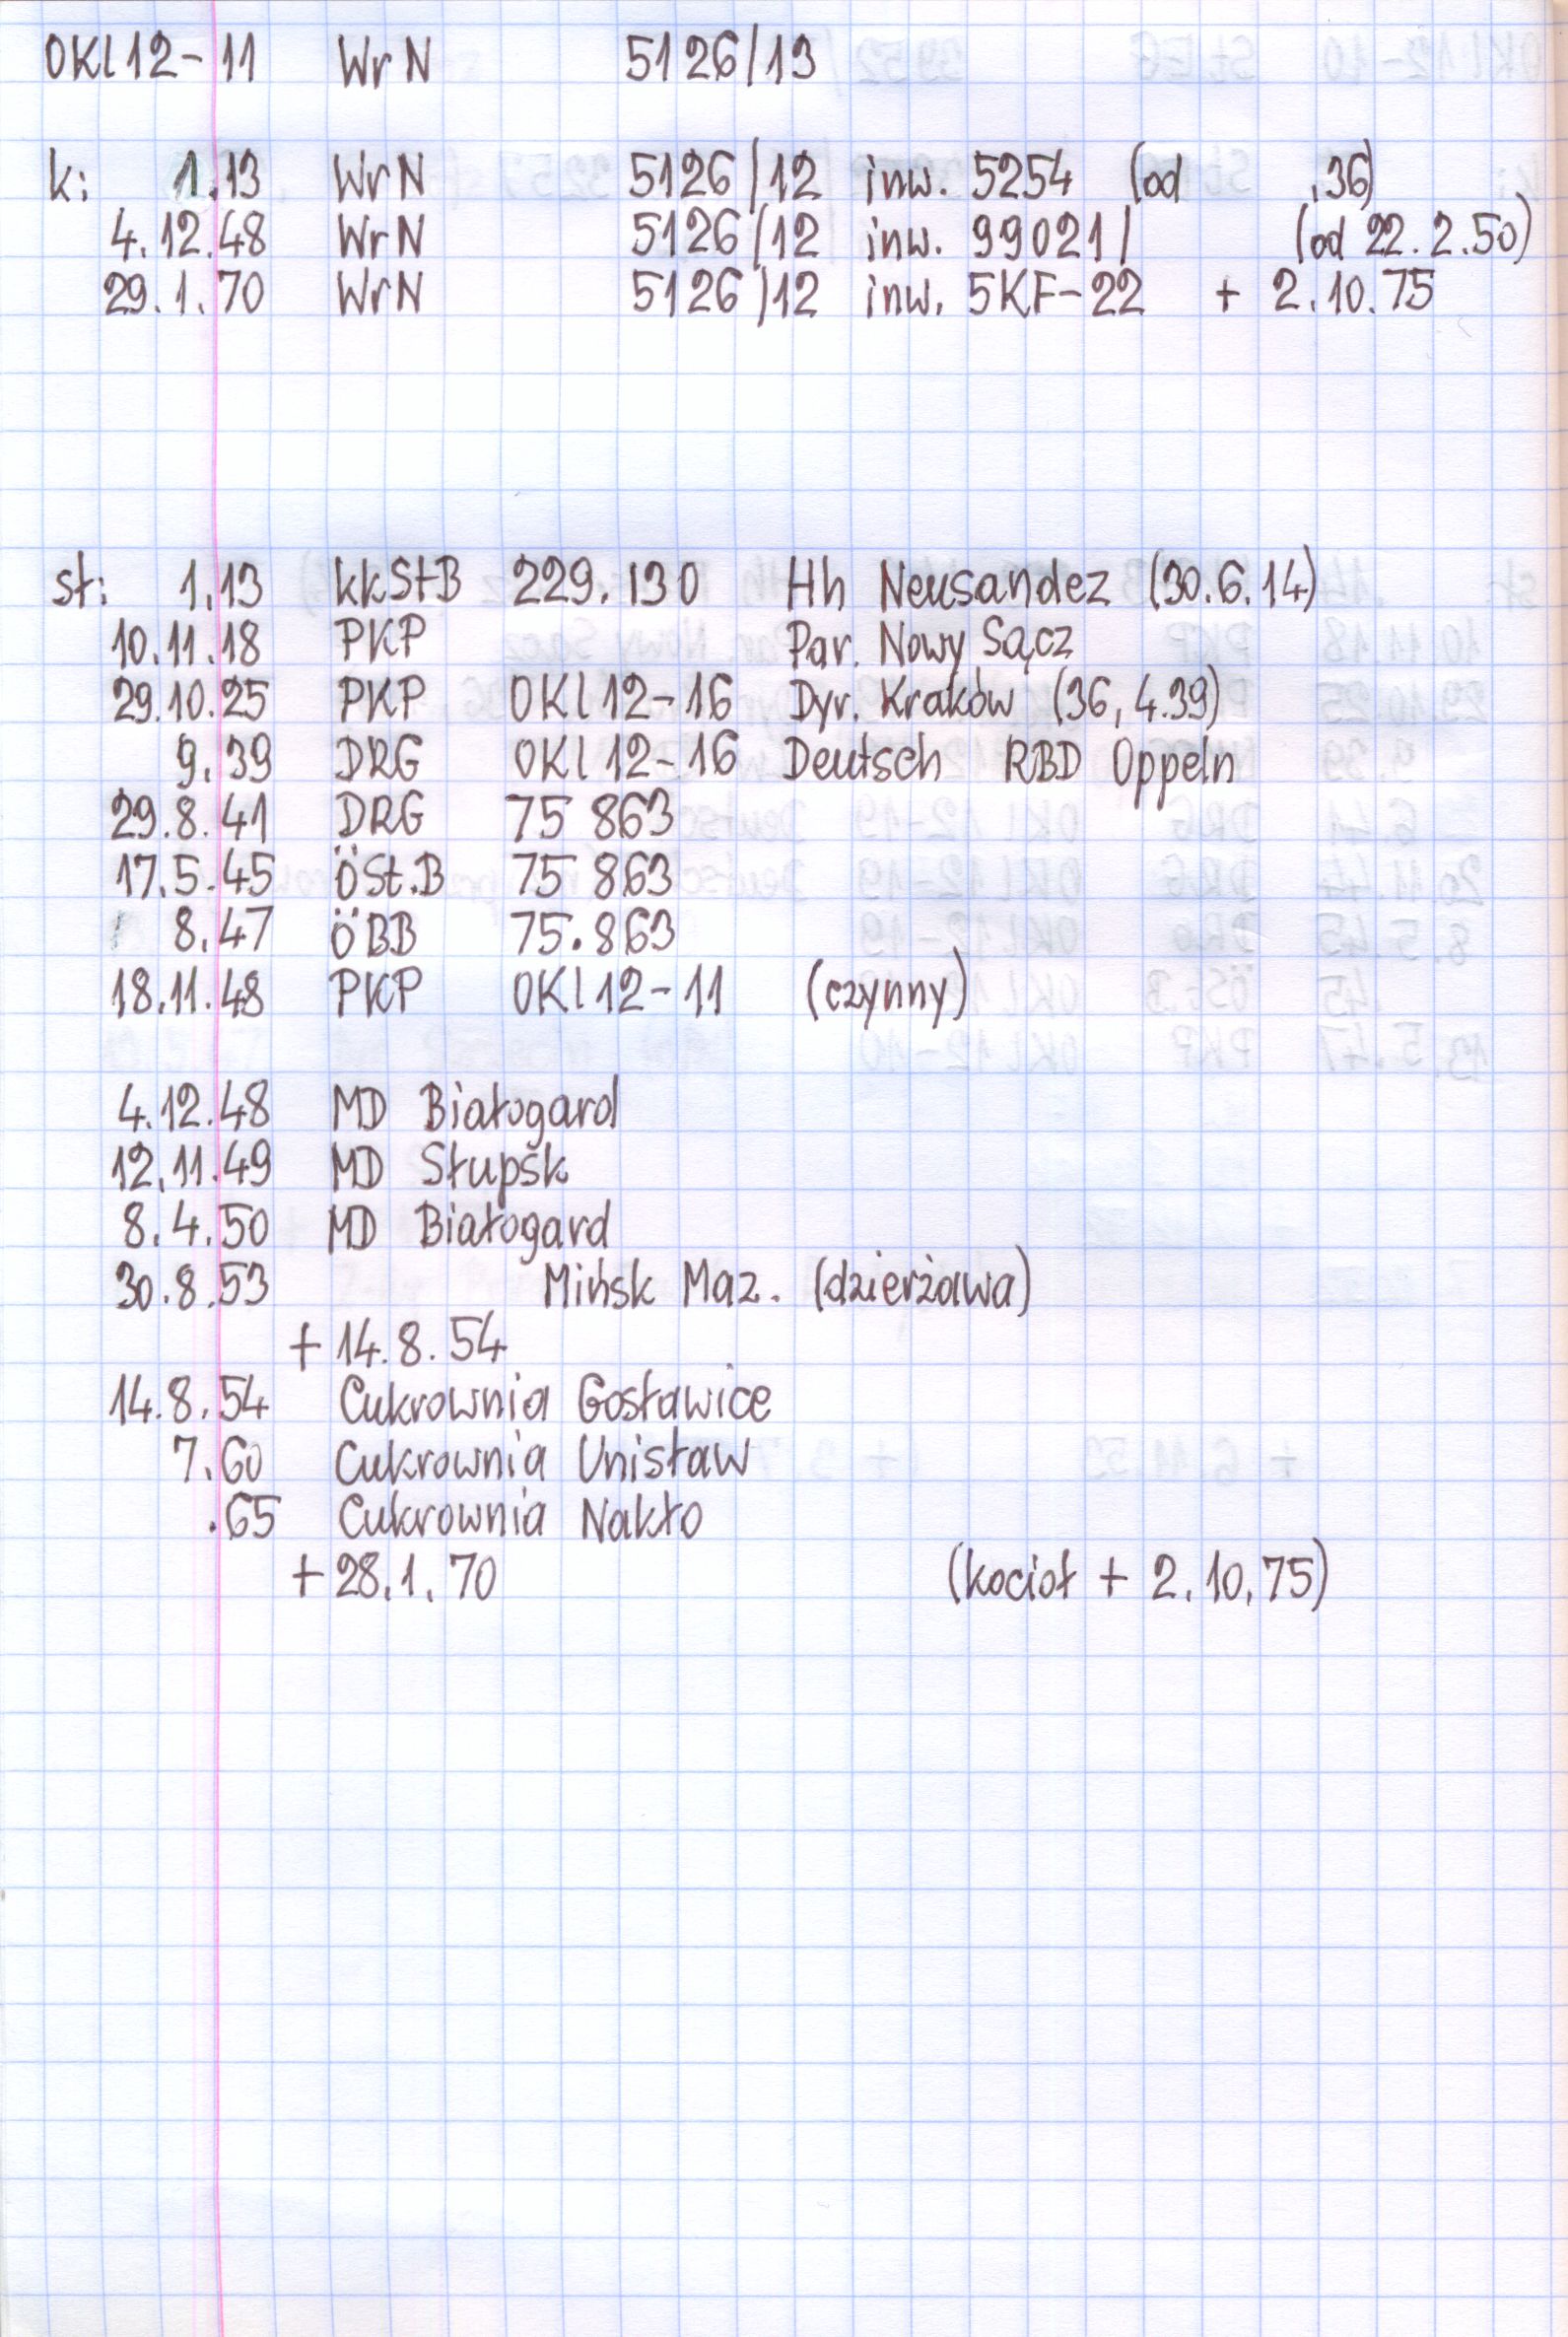 OKl12-11 WrN 5126/13
k: 1.13 WrN 5126/12 inw. 5254 (od .36)
4.12.48 WrN 5126/12 inw. 99021/ (od 22.2.50)
29.1.70 WrN 5126/12 inw. 5KF-22 + 2.10.75
st: 1.13 kkStB 229.130 Hh Neusandez (30.6.14)
10.11.18 PKP Par. Nowy Sącz
29.10.25 PKP OKl12-16 Dyr. Kraków (36, 4.39)
9.39 DRG OKl12-16 Deutsch RBD Oppeln
29.8.41 DRG 75 863
17.5.45 ÖSt.B 75 863
8.47 ÖBB 75.863
18.11.48 PKP OKl12-11 (czynny)
4.12.48 MD Białogard
12.11.49 MD Słupsk
8.4.50 MD Białogard
30.8.53 Mińsk Maz. (dzierżawa)
+ 14.8.54
14.8.54 Cukrownia Gosławice
7.60 Cukrownia Unisław
.65 Cukrownia Nakło
+ 28.1.70 (kocioł + 2.10.75)